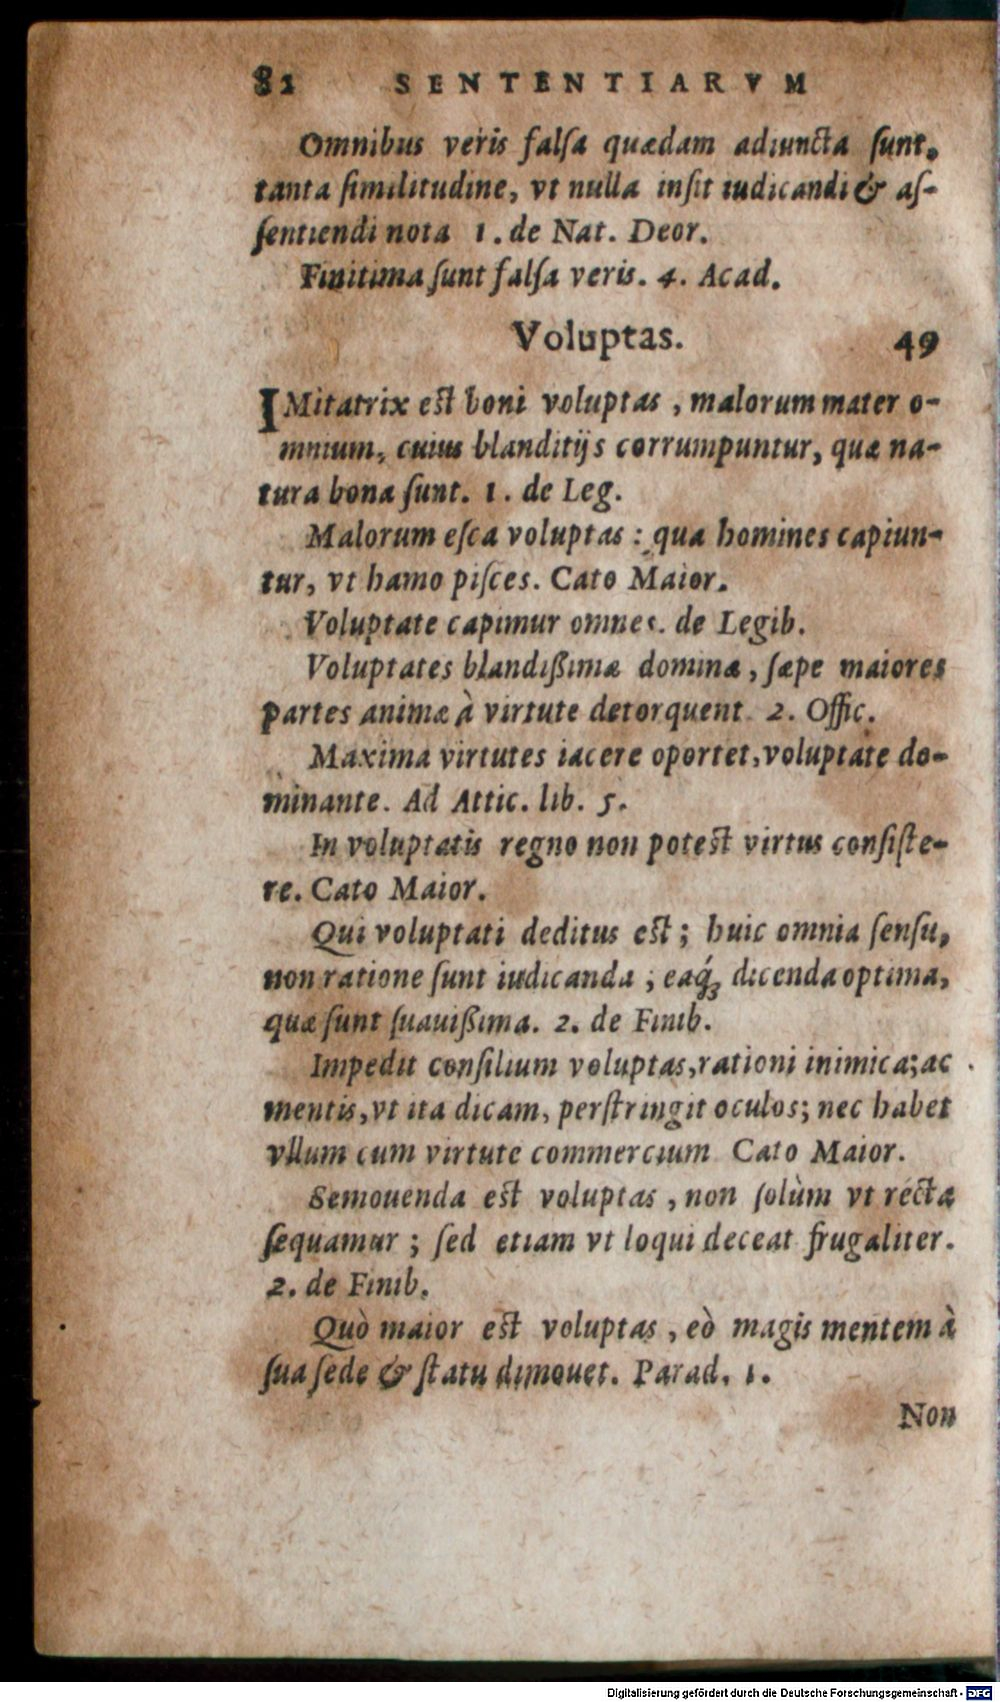 82 SENTENTIARVM
Omnibus veris falſa quædam adiuncta ſunt,
tanta ſimilitudine, vt nulla inſit iudicandi & aſ-
ſentiendi nota 1. de Nat. Deor.
Finitima ſunt falſa veris. 4. Acad.
Voluptas. 49
IMitatrix eſt boni voluptas, malorum mater o-
mnium, cuius blanditijs corrumpuntur, quæ na-
tura bona ſunt. 1. de Leg.
Malorum eſca voluptas: qua homines capiun-
tur, vt hamo piſces. Cato Maior.
Voluptate capimur omnes. de Legib.
Voluptates blandißimæ dominæ, ſæpe maiores
partes animæ à virtute detorquent 2. Offic.
Maxima virtutes iacere oportet, voluptate do-
minante. Ad Attic. lib. 5.
In voluptatis regno non poteſt virtus conſiſte-
re. Cato Maior.
Qui voluptati deditus eſt; huic omnia ſenſu,
non ratione ſunt iudicanda; eaq́ꝫ dicenda optima,
quæ ſunt ſuauißima. 2. de Finib.
Impedit conſilium voluptas, rationi inimica; ac
mentis, vt ita dicam, perſtringit oculos; nec habet
vllum cum virtute commercium Cato Maior.
Semouenda eſt voluptas, non ſolùm vt recta
ſequamur; ſed etiam vt loqui deceat frugaliter.
2. de Finib.
Quò maior eſt voluptas, eò magis mentem à
ſua ſede & ſtatu dimouet. Parad. 1.
Non
Digitalisierung gefördert durch die Deutsche Forschungsgemeinschaft - DFG